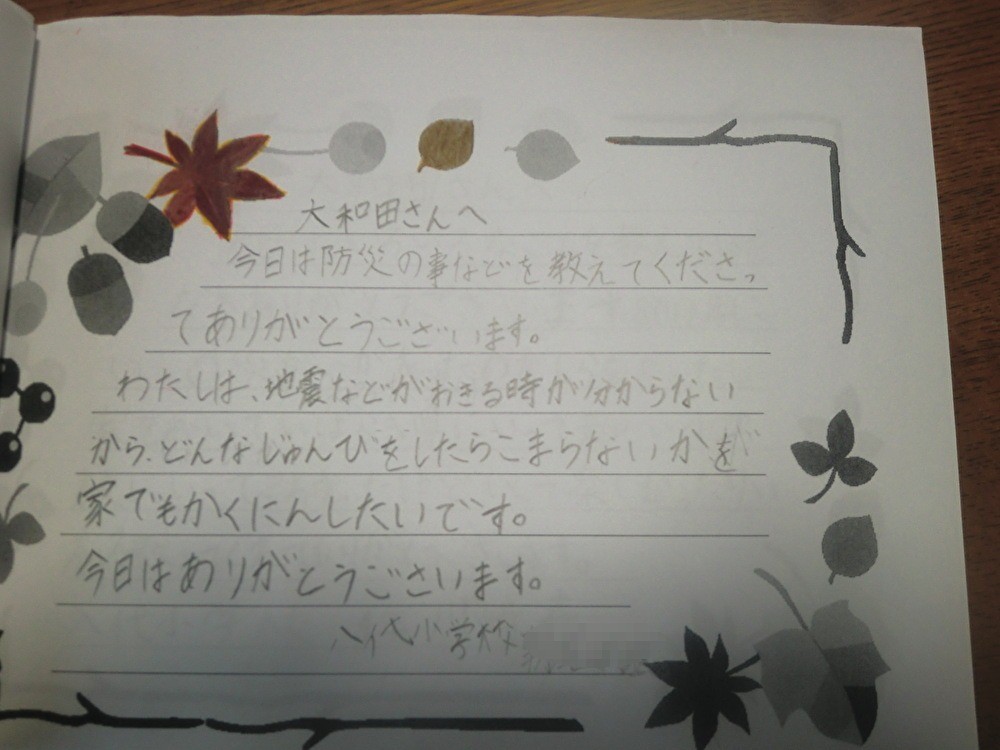 大和田さんへ
今日は防災の事などを教えてくださっ
てありがとうございます。
わたしは、地震などがおきる時が分からない
から、どんなじゅんびをしたらこまらないかを
家でもかくにんしたいです。
今日はありがとうございます。
八代小学校